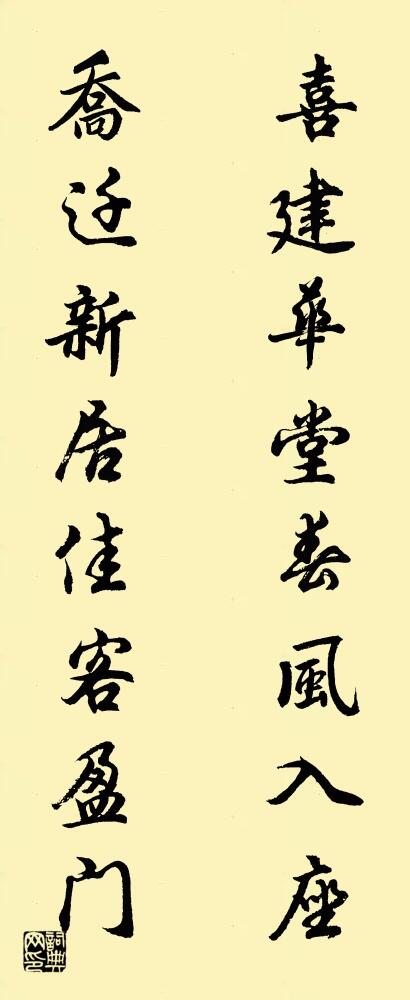 喜建華堂春風入座
喬迁新居佳客盈门
詞典网印